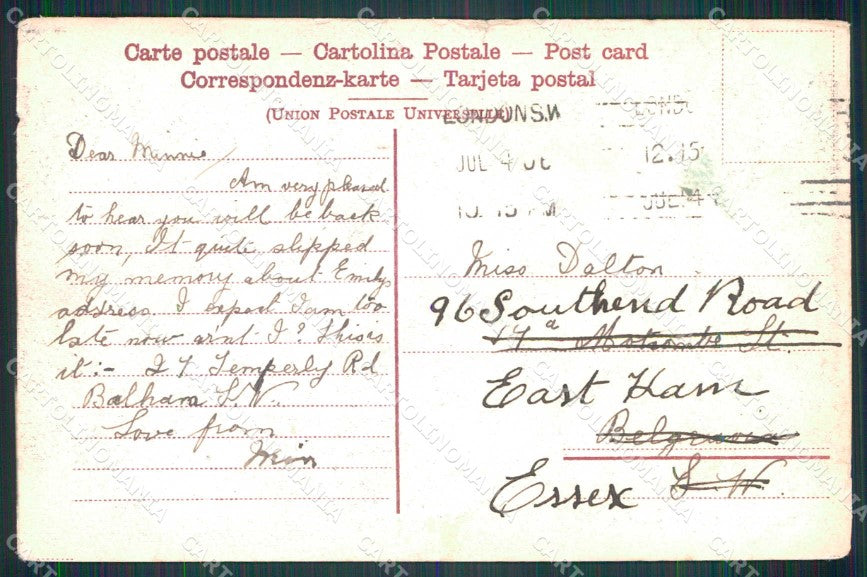 Carte postale — Cartolina Postale — Post card
Correspondenz-karte — Tarjeta postal
(Union Postale Universelle)
LONDON S.W
JUL 4 06
10.15 AM
12.15
JUL 4
Dear Minnie
Am very pleased
to hear you will be back
soon, It quite slipped
my memory about Emilys
address I expect I am too
late now arnt I? This is
it:- 27 Temperly Rd
Balham S.W.
Love from
Miss Dalton
96 Southend Road
17a Motcombe St.
East Ham
Belgravia
Essex S.W.
CARTOLINOMANIA